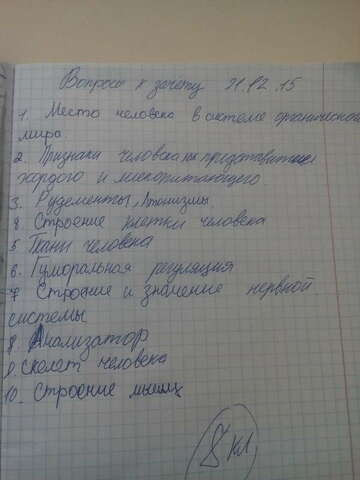 Вопросы к зачету 21.12.15
1. Место человека в системе органического
мира
2. Признаки человека как представителя
хордого и млекопитающего
3. Рудементы, Атонизмы.
4. Строение клетки человека
5 Ткани человека
6. Гуморальная регуляция
7 Строение и значение нервной
системы
8 Анализатор
9. Скелет человека
10. Строение мышц
8 кл,